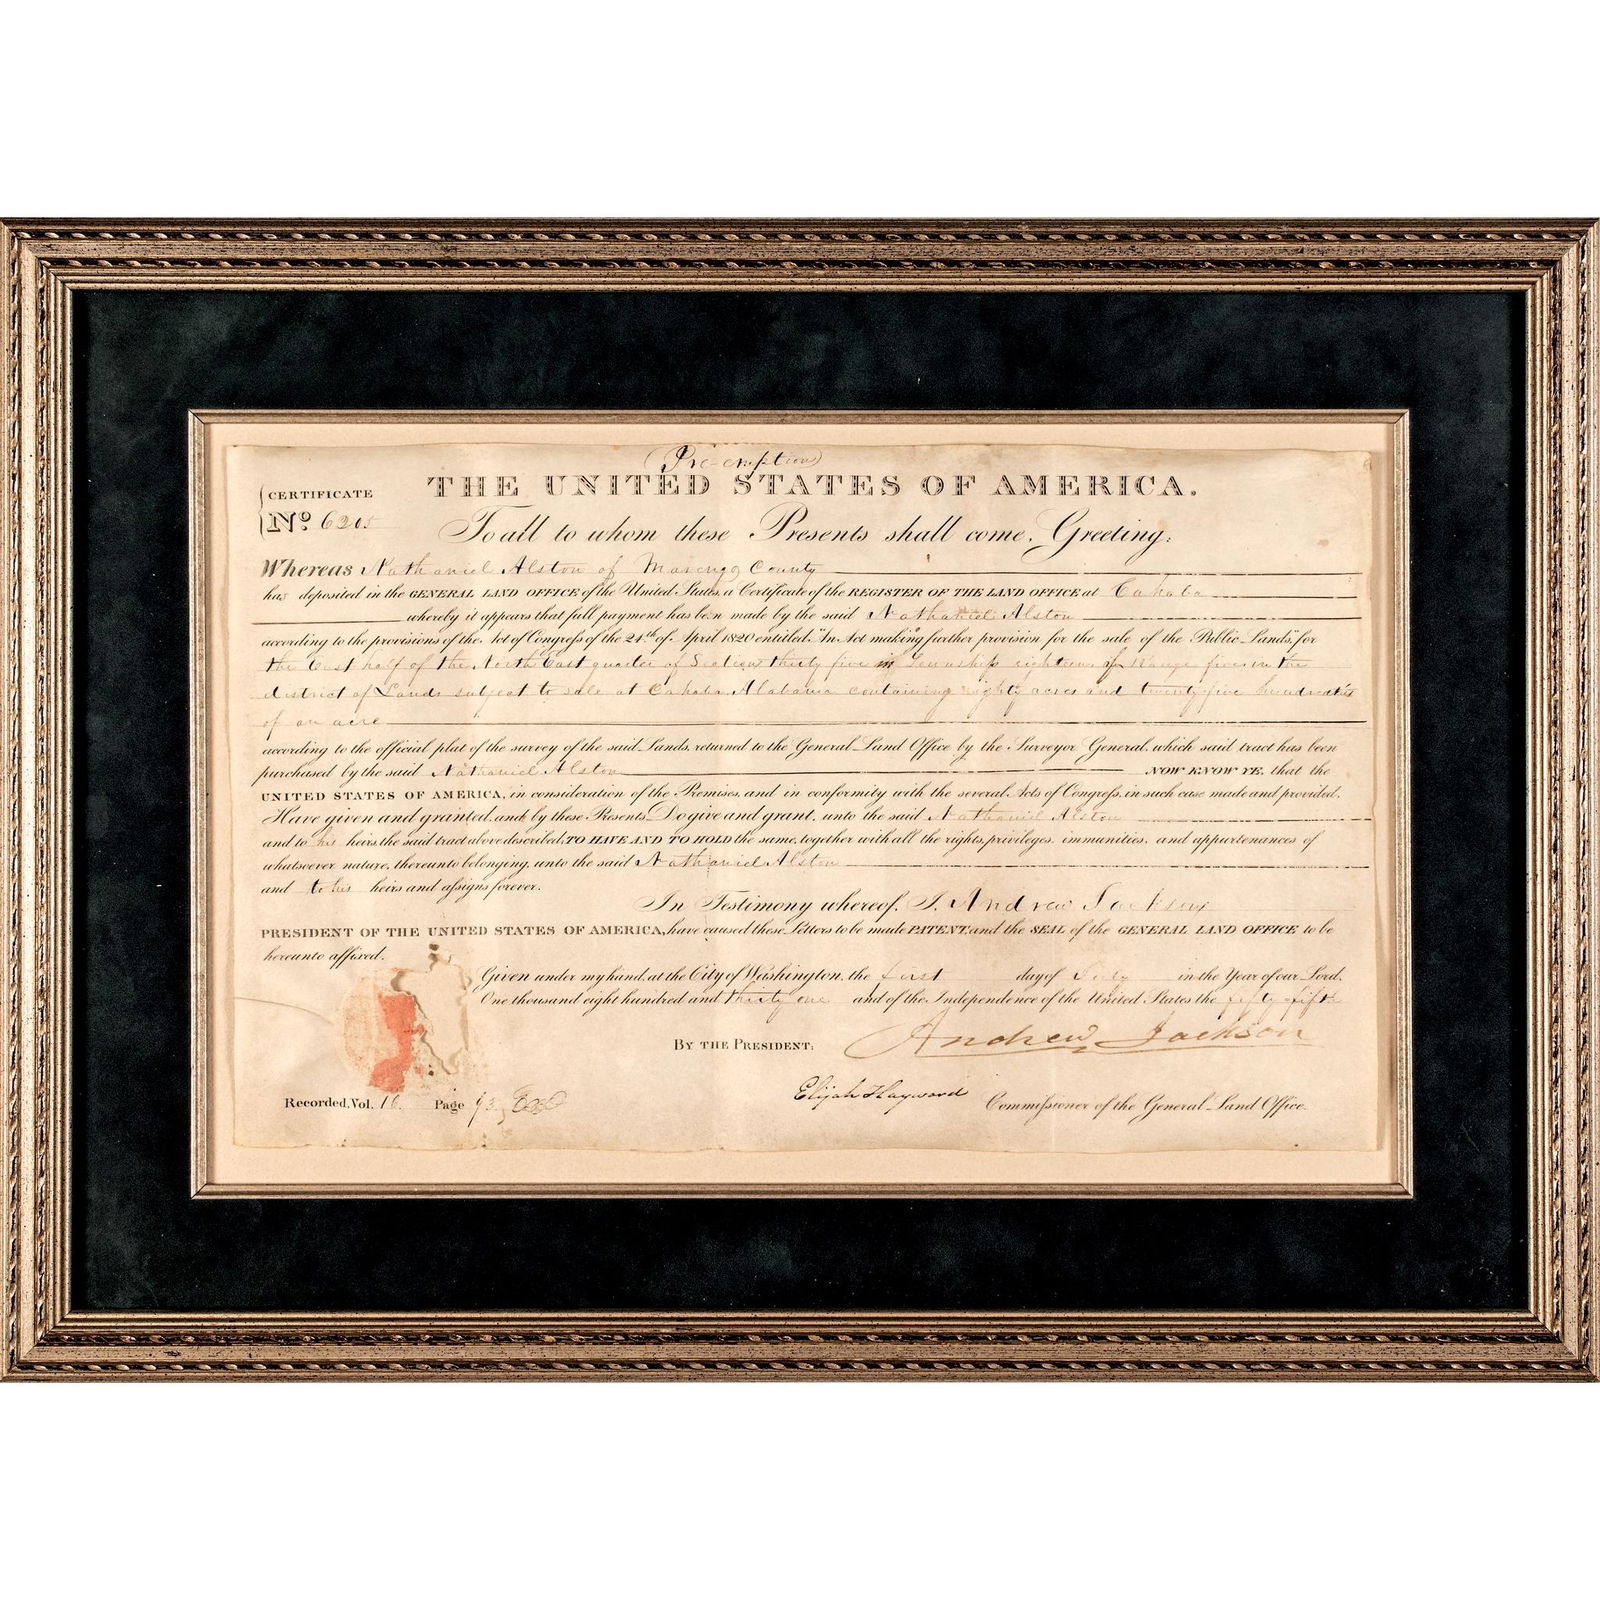 (Pre-emption)
THE UNITED STATES OF AMERICA.
CERTIFICATE
No. 6205
To all to whom these Presents shall come, Greeting:
Whereas Nathaniel Alston of Marengo County
has deposited in the GENERAL LAND OFFICE of the United States, a Certificate of the REGISTER OF THE LAND OFFICE at Cahaba
whereby it appears that full payment has been made by the said Nathaniel Alston
according to the provisions of the Act of Congress of the 24th of April 1820 entitled "An Act making further provision for the sale of the Public Lands," for
the East half of the North East quarter of Section thirty five in Township eighteen of Range five in the
district of Lands subject to sale at Cahaba, Alabama containing eighty acres and twenty five hundredths
of an acre
according to the official plat of the survey of the said Lands, returned to the General Land Office by the Surveyor General, which said tract has been
purchased by the said Nathaniel Alston NOW KNOW YE, that the
UNITED STATES OF AMERICA, in consideration of the Premises, and in conformity with the several Acts of Congress, in such case made and provided,
Have given and granted, and by these Presents Do give and grant, unto the said Nathaniel Alston
and to his heirs, the said tract above described, TO HAVE AND TO HOLD the same, together with all the rights, privileges, immunities, and appurtenances of
whatsoever nature, thereunto belonging, unto the said Nathaniel Alston
and to his heirs and assigns forever.
In Testimony whereof, I, Andrew Jackson
PRESIDENT OF THE UNITED STATES OF AMERICA, have caused these Letters to be made PATENT, and the SEAL of the GENERAL LAND OFFICE to be
hereunto affixed.
Given under my hand, at the City of Washington, the first day of July in the Year of our Lord,
One thousand eight hundred and thirty one and of the Independence of the United States the fifty fifth
BY THE PRESIDENT: Andrew Jackson
Elijah Hayward Commissioner of the General Land Office.
Recorded, Vol. 16. Page 93